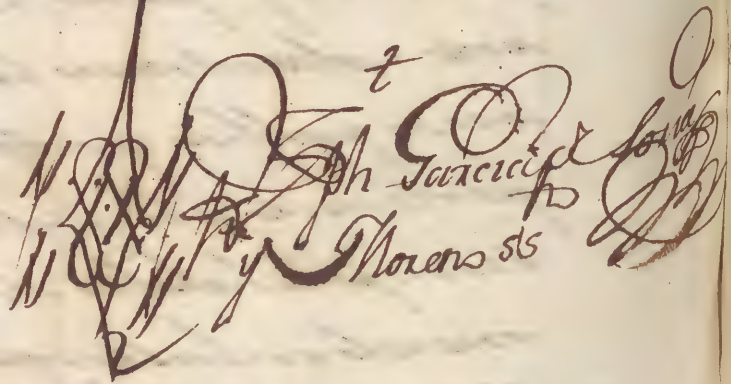 Jph Garcia de Soria
y Moreno